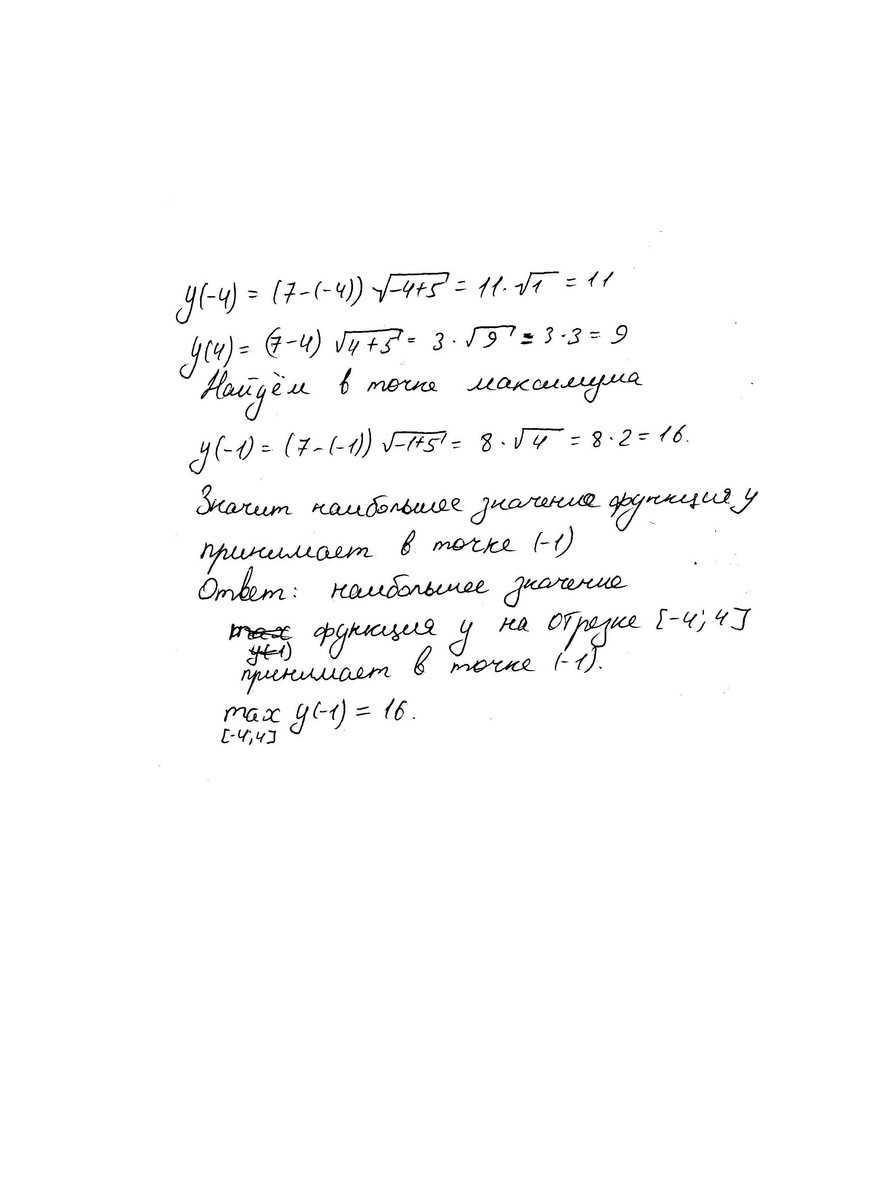 y(-4) = (7-(-4)) √(-4+5) = 11·√1 = 11
y(4) = (7-4) √(4+5) = 3·√9 = 3·3 = 9
Найдём в точке максимума
y(-1) = (7-(-1)) √(-1+5) = 8·√4 = 8·2 = 16.
Значит наибольшее значение функция y
принимает в точке (-1)
Ответ: наибольшее значение
max функция y на отрезке [-4; 4]
y(-1)
принимает в точке (-1).
max y(-1) = 16.
[-4; 4]